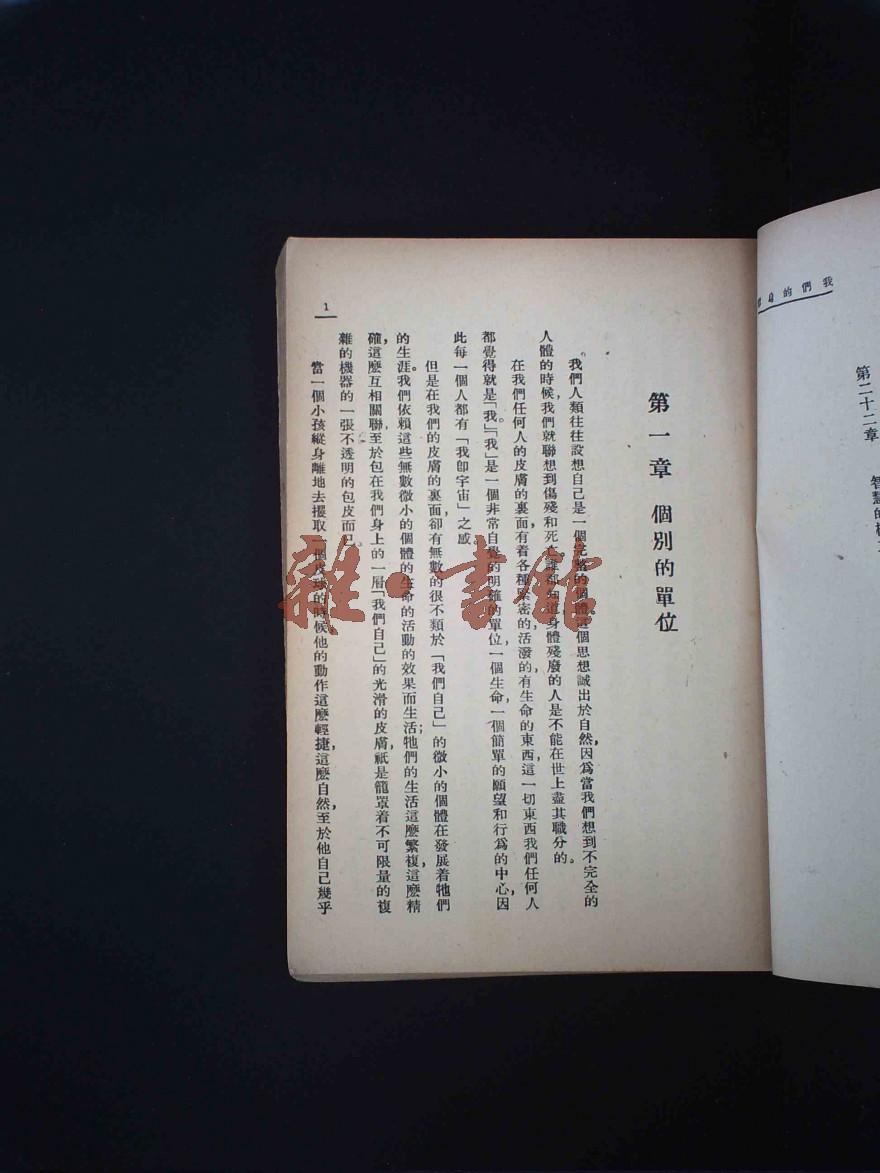 我們的身
第二十二章　智慧的
第一章　個別的單位
我們人類往往設想自己是一個完整的個體。這個思想誠出於自然,因爲當我們想到不完全的
人體的時候,我們就聯想到傷殘和死亡。誰都知道身體殘廢的人是不能在世上盡其職分的。
在我們任何人的皮膚的裏面,有着各種緊密的活潑的有生命的東西,這一切東西我們任何人
都覺得就是「我」。「我」是一個非常自覺的明確的單位,一個生命,一個簡單的願望和行爲的中心,因
此每一個人都有「我卽宇宙」之感
但是在我們的皮膚的裏面,卻有無數的很不類於「我們自己」的微小的個體在發展着牠們
的生涯。我們依賴這些無數微小的個體的生命的活動的效果而生活;牠們的生活這麽繁複,這麽精
確,這麽互相關聯,至於包在我們身上的一層「我們自己」的光滑的皮膚,祇是籠罩着不可限量的複
雜的機器的一張不透明的包皮而已。
當一個小孩縱身離地去攫取一個皮球的時候,他的動作這麽輕捷,這麽自然,至於他自己幾乎
1
雜·書館